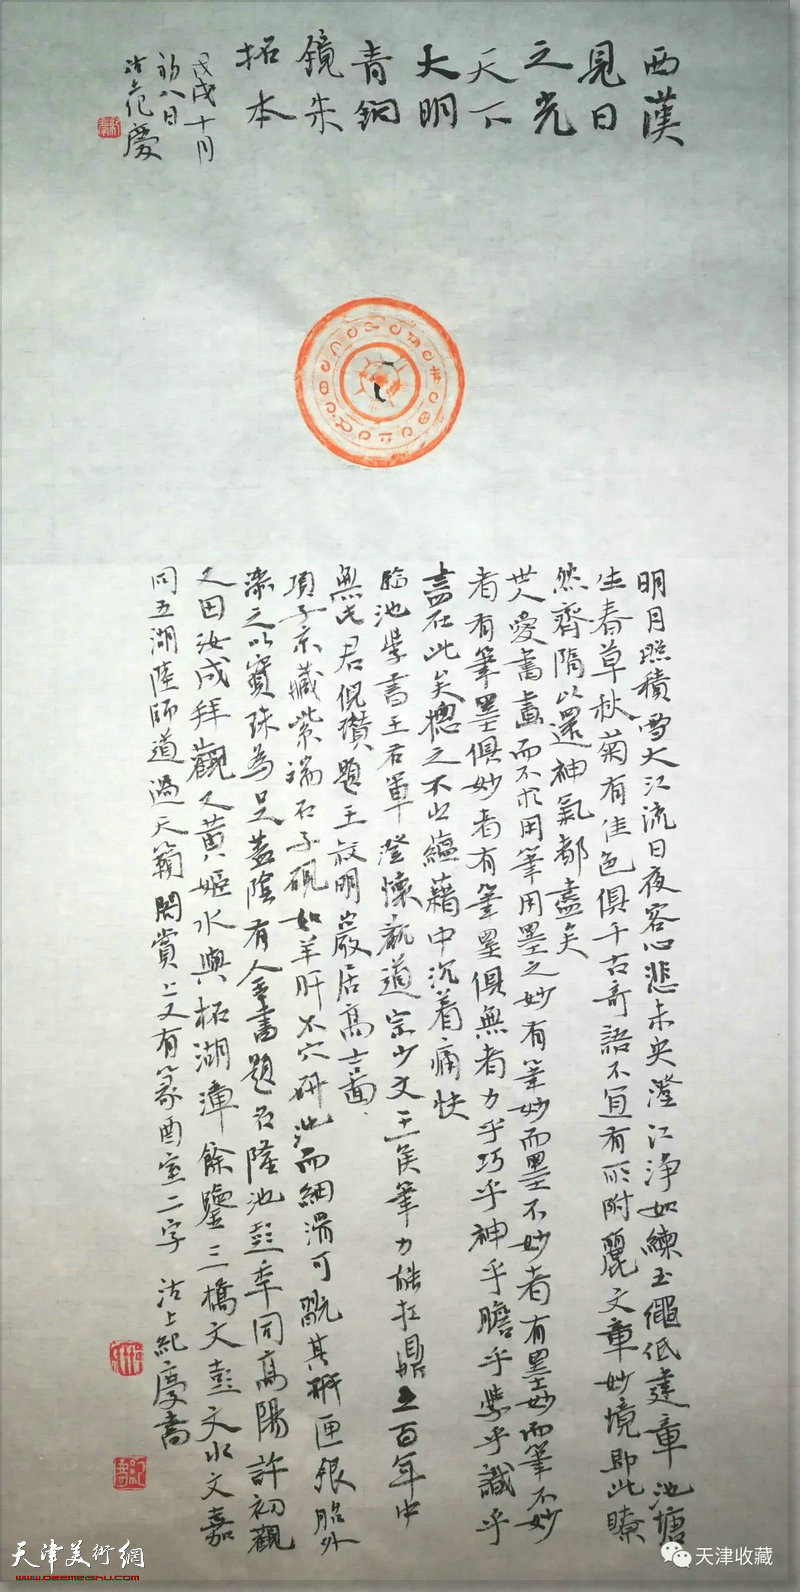 西漢
見日
之光
天下
大明
青銅
鏡朱
拓本
戊戌十月
初八日
沽上紀慶
明月照積雪大江流日夜客心悲未央澄江浄如練玉繩低建章池塘
生春草秋菊有佳色俱千古奇語不宜有所附麗文章妙境即此瞭
然齊隋以還神氣都盡矣
世人愛書畫而不求用筆用墨之妙有筆妙而墨不妙者有墨妙而筆不妙
者有筆墨俱妙者有筆墨俱無者力乎巧乎神乎膽乎學乎識乎
盡在此矣總之不出蘊藉中沉着痛快
臨池學書王右軍澄懷觀道宗少文王侯筆力能扛鼎五百年中
無此君倪瓚題王叔明巖居高士圖
項子京藏紫端石子硯如羊肝不穴研池而細滑可翫其研匣銀胎外
漆之以寶珠為足蓋陰有人手書題名隆池彭年同高陽許初觀
又田汝成拜觀又黃姬水與柘湖漳餘鑒三橋文彭文水文嘉
同五湖陸師道過天籟閣賞上又有篆酉室二字 沽上紀慶書
天津美術網
www.022meishu.com
天津收藏